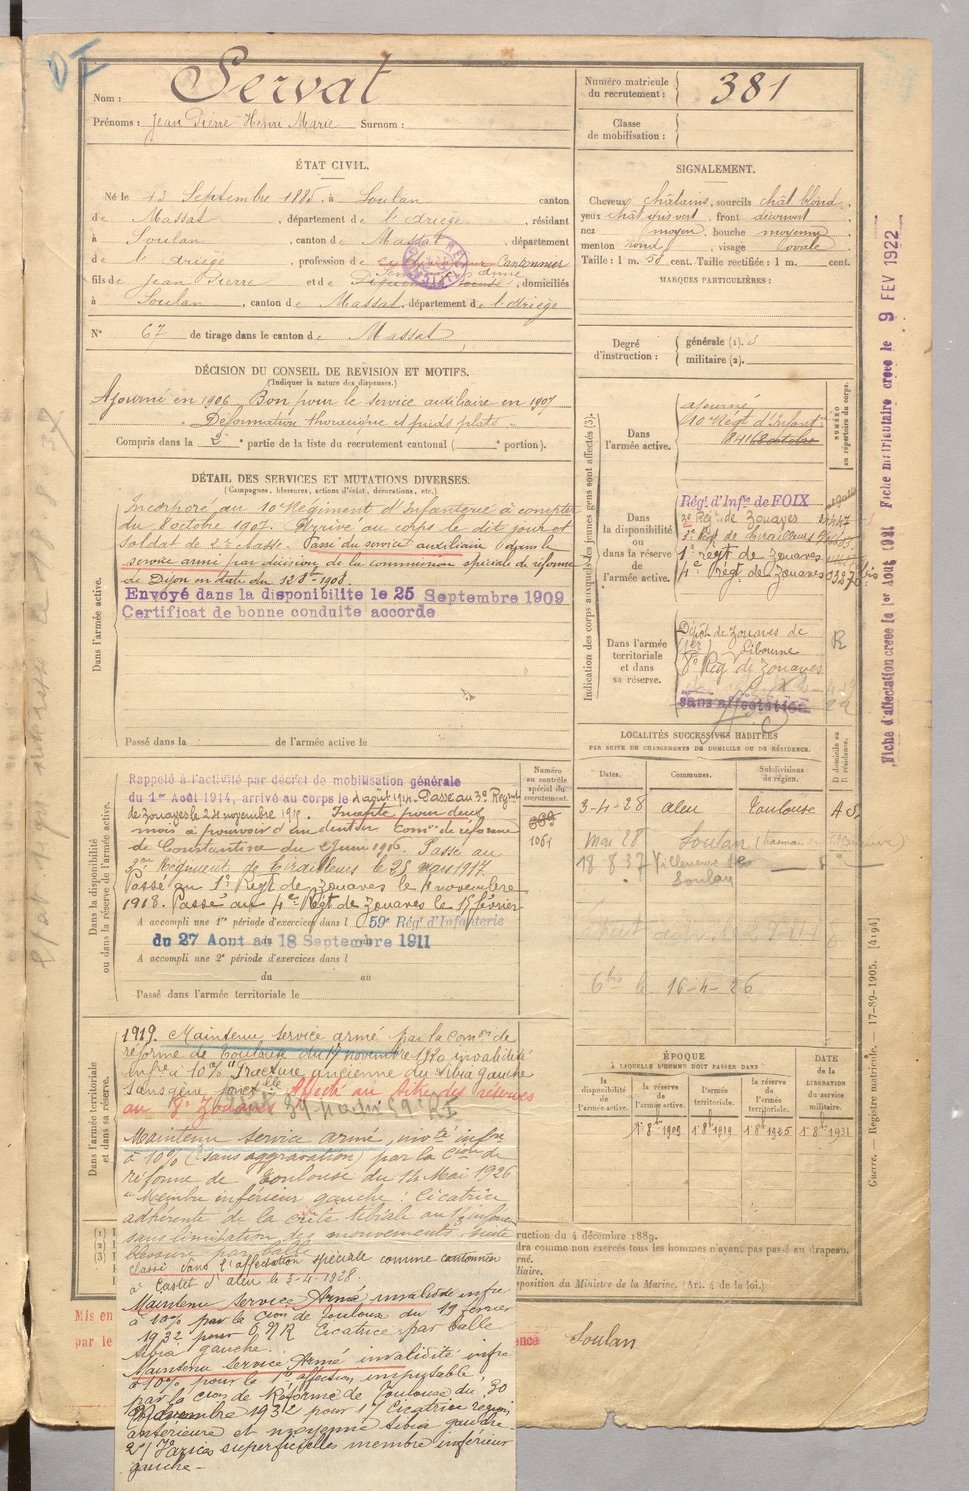 Nom : Servat
Prénoms : Jean Pierre Henri Marie Surnom :
Numéro matricule du recrutement : 381
Classe de mobilisation :
ÉTAT CIVIL.
Né le 13 Septembre 1885, à Soulan canton
de Massat, département de l'Ariège, résidant
à Soulan, canton de Massat, département
de l'Ariège, profession de Cantonnier
fils de Jean Pierre et de Anne, domiciliés
à Soulan, canton de Massat, département de l'Ariège
N° 67 de tirage dans le canton de Massat
SIGNALEMENT.
Cheveux châtains, sourcils chât blond,
yeux chât gris vert, front découvert,
nez moyen, bouche moyenne,
menton rond, visage ovale
Taille : 1 m. 58 cent. Taille rectifiée : 1 m. cent.
MARQUES PARTICULIÈRES :
Degré d'instruction : générale (1). 3
militaire (2).
DÉCISION DU CONSEIL DE REVISION ET MOTIFS.
(Indiquer la nature des dispenses.)
Ajourné en 1906 Bon pour le service auxiliaire en 1907
Déformation thoracique et pieds plats
Compris dans la 2e partie de la liste du recrutement cantonal ( portion).
DÉTAIL DES SERVICES ET MUTATIONS DIVERSES.
(Campagnes, blessures, actions d'éclat, décorations, etc.)
Dans l'armée active.
Incorporé au 10e Régiment d'Infanterie à compter
du 8 octobre 1907. Arrivé au corps le dit jour et
soldat de 2e classe. Passé du service auxiliaire dans le
service armé par décision de la commission spéciale de réforme
de Dijon en date du 12 8bre 1908.
Envoyé dans la disponibilité le 25 Septembre 1909
Certificat de bonne conduite accordé
Passé dans la de l'armée active le
Dans la disponibilité ou dans la réserve de l'armée active.
Rappelé à l'activité par décret de mobilisation générale
du 1er Août 1914, arrivé au corps le 4 août 1914. Passé au 3e Régiment
de Zouaves le 24 novembre 1915. Inapte pour deux
mois à pourvoir d'un dentier Comon de réforme
de Constantine du 2 Juin 1916. Passé au
3e Régiment de Tirailleurs le 25 mars 1917.
Passé au 1er Régt de Zouaves le 11 novembre
1918. Passé au 4e Régt de Zouaves le 15 février
A accompli une 1re période d'exercices dans l 59e Régt d'Infanterie
du 27 Aout au 18 Septembre 1911
A accompli une 2e période d'exercices dans l
du au
Passé dans l'armée territoriale le
Numéro au contrôle spécial du recrutement.
1061
Indication des corps auxquels les jeunes gens sont affectés (3).
NUMÉRO au répertoire du corps.
Dans l'armée active.
ajourné
10e Régt d'Infant
Dans la disponibilité ou dans la réserve de l'armée active.
Régt d'Infie de FOIX
3e Régt de Zouaves
3e Régt de Tirailleurs
1er régt de Zouaves
4e Régt de Zouaves
Dans l'armée territoriale et dans sa réserve.
Dépôt de Zouaves de
Libourne
8e Rég de Zouaves
sans affectation
R
LOCALITÉS SUCCESSIVES HABITÉES
PAR SUITE DE CHANGEMENTS DE DOMICILE OU DE RÉSIDENCE.
Dates. Communes. Subdivisions de région. D domicile ou R résidence.
3-4-28 Aleu Toulouse
Mai 28 Soulan
18 8 37 Villeneuve
Soulan
le 16-4-26
Dans l'armée territoriale et dans sa réserve.
1919. Maintenu service armé par la Comon de
réforme de Toulouse du 17 novembre 1920 invalidité
infre à 10% "Fracture ancienne du tibia gauche
sans gêne fonctelle Affecté au titre des réserves
au 8e Zouaves
Maintenu service armé, invté infre
à 10% (sans aggravation) par la Cion de
réforme de Toulouse du 14 Mai 1926
"Membre inférieur gauche : Cicatrice
adhérente de la crête tibiale
sans limitation des mouvements, suite
blessure par balle
Classé dans l'affectation spéciale comme cantonnier
à Castet d'aleu le 3-4-1928.
Maintenu Service Armé invalidité infre
à 10% par la Cion de Toulouse du 19 février
1932 pour Cicatrice par balle
tibia gauche.
Maintenu Service Armé invalidité infre
à 10% pour la 1re affection imputable
par la Cion de Réforme de Toulouse du 30
Novembre 1932 pour 1/ Cicatrice région
antérieure et moyenne tibia gauche
2/ Varices superficielles membre inférieur
gauche -
ÉPOQUE
À LAQUELLE L'HOMME DOIT PASSER DANS
la disponibilité de l'armée active. la réserve de l'armée active. l'armée territoriale. la réserve de l'armée territoriale.
DATE de la LIBÉRATION du service militaire.
1er 8bre 1909 1er 8bre 1919 1er 8bre 1925 1er 8bre 1931
ruction du 4 décembre 1889.
dra comme non exercés tous les hommes n'ayant pas passé au drapeau.
rmé.
iliaire.
sposition du Ministre de la Marine. (Art. 4 de la loi.)
Mis en
par le
Soulan
Guerre. — Registre matricule. — 17-89-1905. [4194]
Fiche d'affectation créée le 1er Aout 1921 Fiche matriculaire créée le 9 FEV 1922